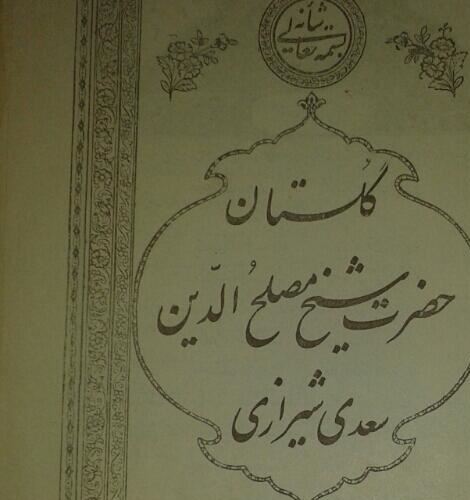 بسمه تعالی شأنه
گلستان
حضرت شیخ مصلحُ الدّین
سعدی شیرازی